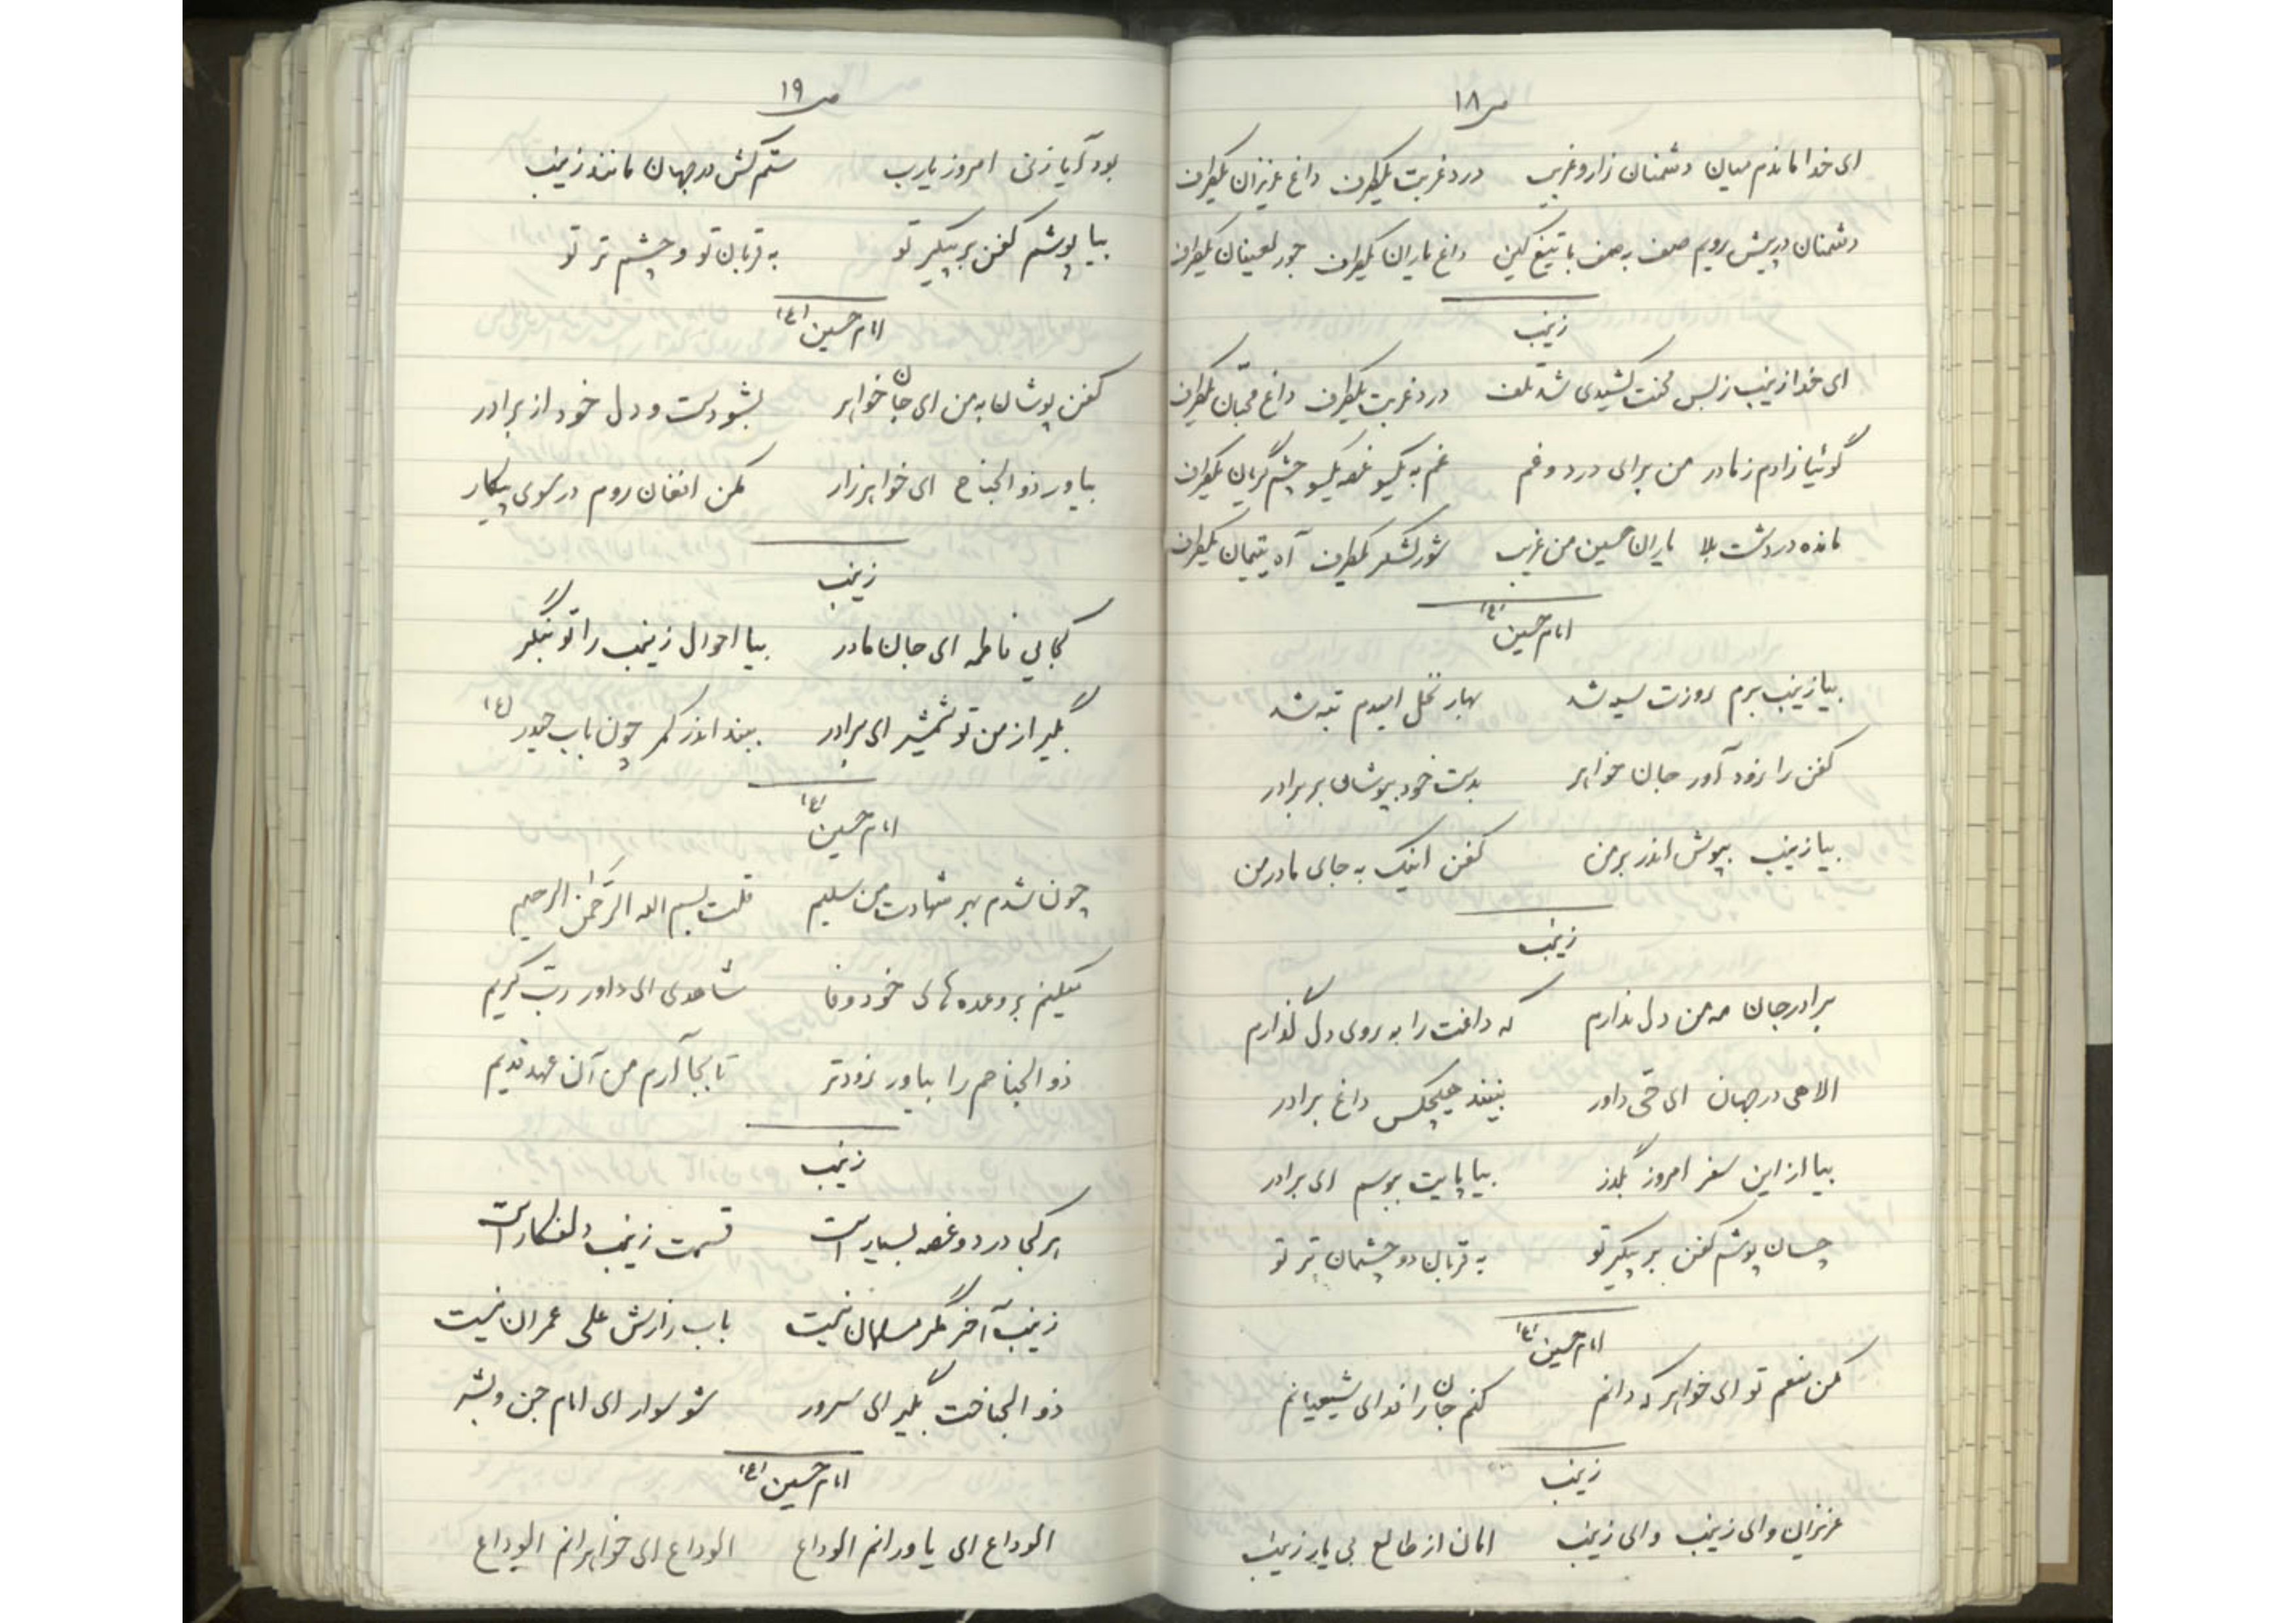 ص ۱۸
ای خدا ماندم میان دشمنان زار و غریب درد غربت یکطرف داغ عزیزان یکطرف
دشمنان در پیش رویم صف به صف با تیغ کین داغ یاران یکطرف جور لعینان یکطرف
زینب
ای خدا زینب ز بس محنت کشیدی شد تلف درد غربت یکطرف داغ محبّان یکطرف
گوئیا زادم ز مادر من برای درد و غم غم به یکسو غصه یکسو چشم گریان یکطرف
مانده در دشت بلا یاران حسین من غریب شور لشگر یکطرف آه یتیمان یکطرف
امام حسین (ع)
بیا زینب برم روزت سیه شد بهار نخل امیدم تبه شد
کفن را زود آور جان خواهر بدست خود بپوشان بر برادر
بیا زینب بپوش اندر بر من کفن اینک به جای مادر من
زینب
برادر جان مه من دل ندارم که داغت را به روی دل گذارم
الاهی در جهان ای حّی داور نبیند هیچکس داغ برادر
بیا از این سفر امروز بگذر بیا پایت ببوسم ای برادر
چسان پوشم کفن بر پیکر تو به قربان دو چشمان تر تو
امام حسین (ع)
مکن منعم تو ای خواهر که دانم کنم جان را فدای شیعیانم
زینب
عزیزان وای زینب وای زینب امان از طالع بی یار زینب
ص ۱۹
بود آیا زنی امروز یارب ستم کش در جهان مانند زینب
بیا پوشم کفن بر پیکر تو به قربان تو و چشم تر تو
امام حسین (ع)
کفن پوشان به من ای جان خواهر بشو دست و دل خود از برادر
بیاور ذوالجناح ای خواهر زار مکن افغان روم در سوی پیکار
زینب
کجایی فاطمه ای جان مادر بیا احوال زینب را تو بنگر
بگیر از من تو شمشیر ای برادر ببند اندر کمر چون باب حیدر (ع)
امام حسین (ع)
چون شدم بهر شهادت من سلیم قلت بسم الله الرّحمن الرحیم
میکنم بر وعده های خود وفا شاهدی ای داور ربّ کریم
ذوالجناحم را بیاور زودتر تا بجا آرم من آن عهد قدیم
زینب
هر کجا درد و غصه بسیار است قسمت زینب دلفکار است
زینب آخر مگر مسلمان نیست باب زارش علی عمران نیست
ذوالجناحت بگیر ای سرور شو سوار ای امام جن و بشر
امام حسین (ع)
الوداع ای یاورانم الوداع الوداع ای خواهرانم الوداع